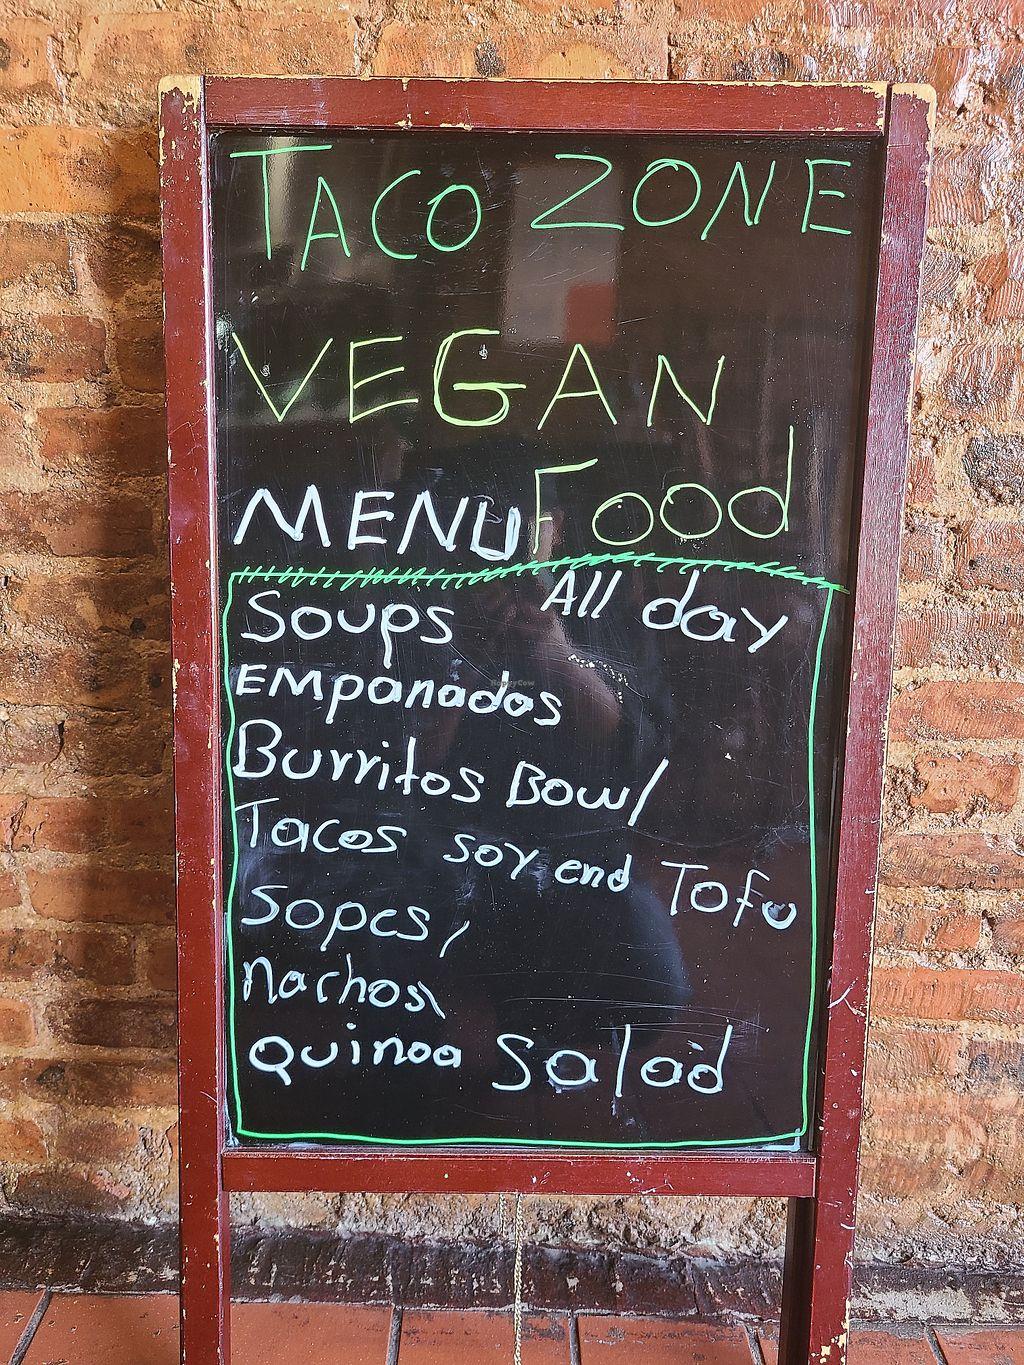 TACO ZONE
VEGAN
MENU Food
All day
Soups
EMpanadas
Burritos Bowl
Tacos soy end Tofu
Sopes,
nachos,
Quinoa Salad
HappyCow